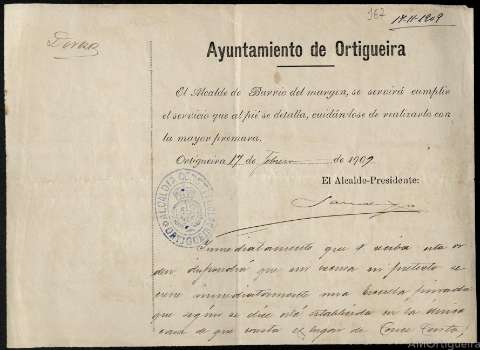 167
17-II-1909
Ayuntamiento de Ortigueira
El Alcalde de Barrio del margen, se servirá cumplir
el servicio que al pié se detalla, cuidándose de realizarlo con
la mayor premura.
Ortigueira 17 de Febrero de 1909.
El Alcalde-Presidente:
ALCALDIA
ORTIGUEIRA
Inmediatamente que reciba esta or
den dispondrá que sin excusa ni pretexto se
cierre inmediatamente una Escuela privada
que según se dice está establecida en la
casa de que consta el lugar de
AMOrtigueira